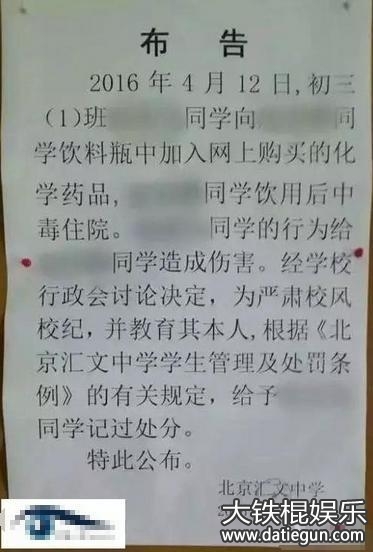 布 告
2016年4月12日,初三
(1)班 同学向 同
学饮料瓶中加入网上购买的化
学药品, 同学饮用后中
毒住院。 同学的行为给
同学造成伤害。经学校
行政会讨论决定，为严肃校风
校纪,并教育其本人,根据《北
京汇文中学学生管理及处罚条
例》的有关规定，给予
同学记过处分。
特此公布。
北京汇文中学
大铁棍娱乐
www.datiegun.com